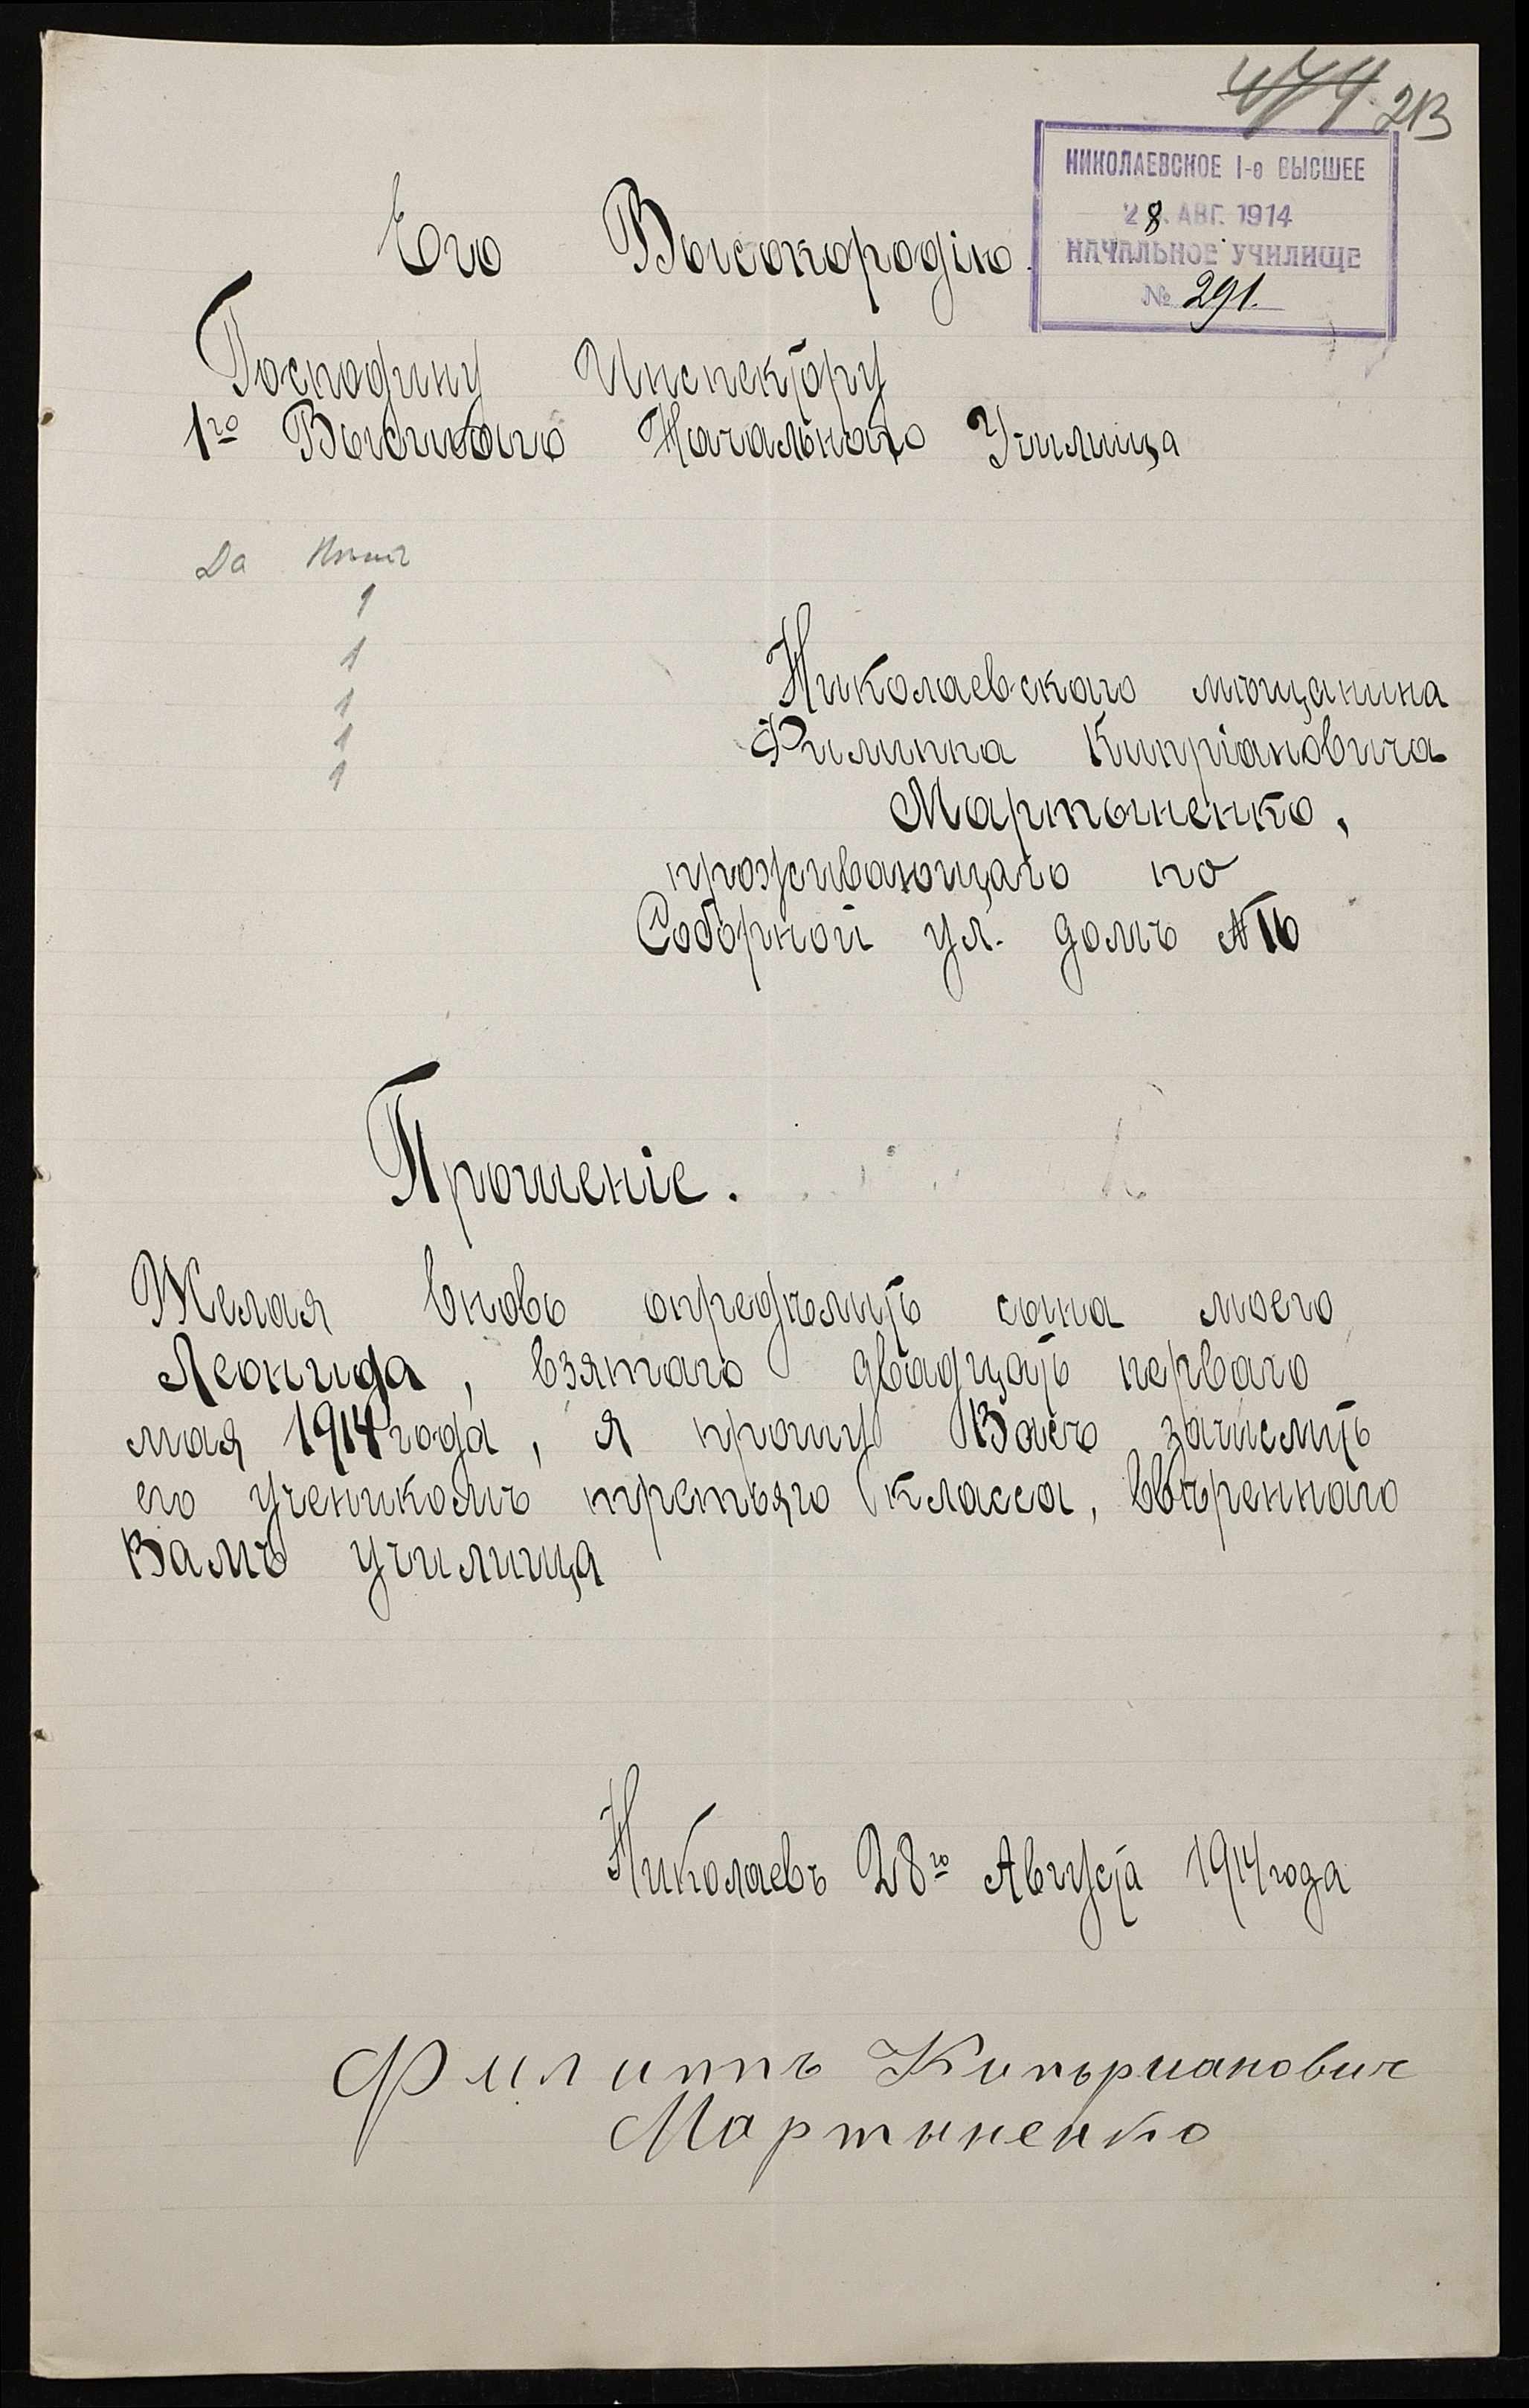 474 213
НИКОЛАЕВСКОЕ 1-е ВЫСШЕЕ
28. АВГ. 1914
НАЧАЛЬНОЕ УЧИЛИЩЕ
№ 291.
Его Высокородію.
Господину Инспектору
1го Высшаго Начальнаго Училища
Да Нѣтъ
1
1
1
1
1
Николаевскаго мѣщанина
Филиппа Кипріановича
Мартыненко,
проживающаго по
Соборной ул. домъ №16
Прошеніе.
Желая вновь опредѣлить сына моего
Леонида, взятаго двадцать перваго
мая 1914 года, я прошу Васъ зачислить
его ученикомъ третьяго класса, ввѣреннаго
Вамъ училища
Николаевъ 28го Августа 1914 года
Филиппъ Киприанович
Мартыненко